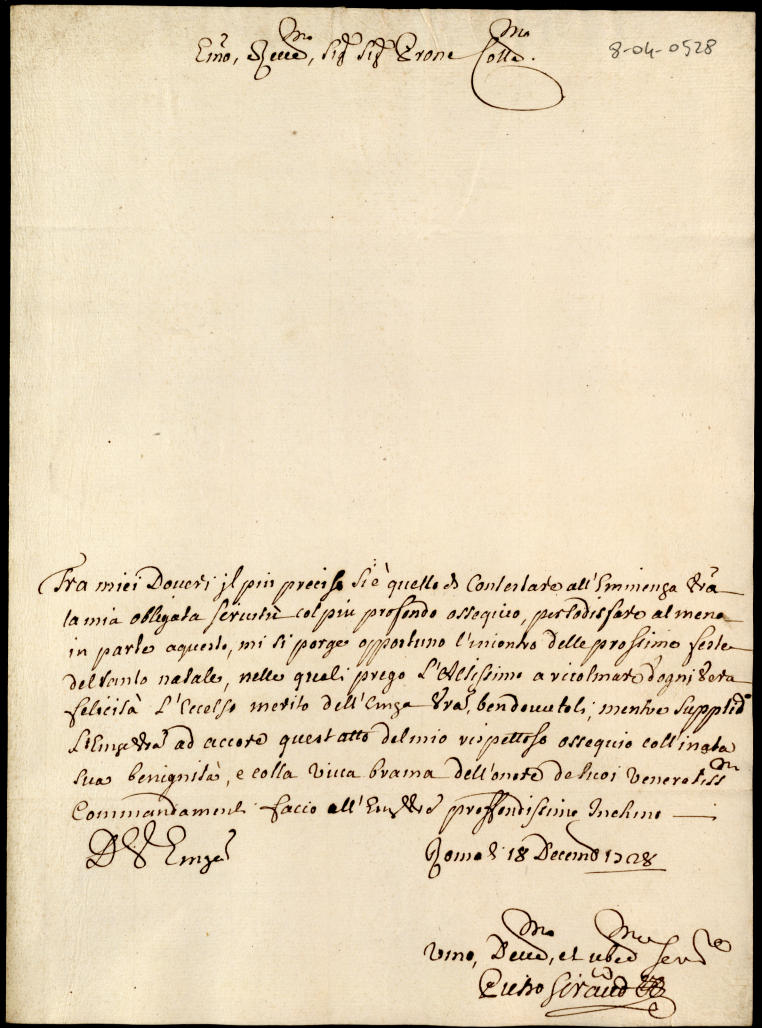 Emo, e Reve mo, Sig Sig Prone Colle mo.
8-04-0528
Fra miei Doveri jl piu preciso si è quello di Contestare all'Eminenza Vra
la mia obligata servitù col piu profondo ossequio, per sodisfare al meno
in parte aquesto, mi si porge opportuno l'incontro delle prossime feste
del santo natale, nelle quali prego L'Altissimo a ricolmare d'ogni vera
felicità L'Eccelso merito dell'Emza Vra, bendovutoli, mentre supplico
L'Emza Vra ad accore quest atto del mio rispettoso ossequio coll'inata
sua benignità, e colla viva brama dell'onore de suoi veneratiss mi
Commandamenti faccio all'Emza Vra proffondissimo Inchino
D V Emza
Roma li 18 Decembe 1728
Vmo, Devmo, et obedmo serve
Pietro Giraud